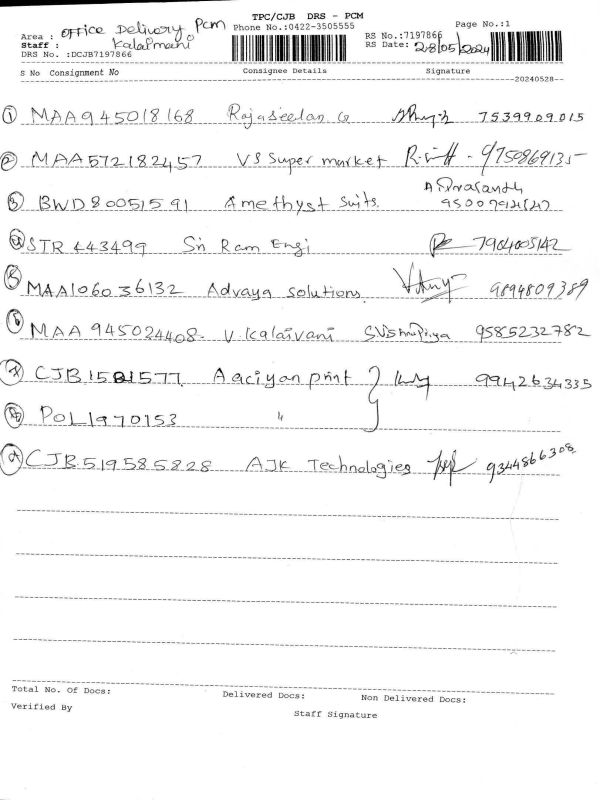 TPC/CJB DRS - PCM
Page No.:1
Area : Office Delivery PCM
Phone No.:0422-3505555
RS No.:7197866
Staff : Kalaimani
RS Date: 28/05/2024
DRS No. :DCJB7197866
S No Consignment No Consignee Details Signature
20240528
1 MAA945018168 Rajaseelan G 7539909015
2 MAA572182457 VS Super market 9750869135
3 BWD80051591 Amethyst Suits.
STR 443499 Sri Ram Engi 7904005142
5 MAA106036132 Advaya solutions 9894809389
6 MAA 945024408 V. Kalaivani S Vishnu Priya 9585232782
CJB 1581577 Aaciyan print 9942634335
POL1970153 "
CJB 519585828 AJK Technologies 9344866308
Total No. Of Docs: Delivered Docs: Non Delivered Docs:
Verified By
Staff Signature